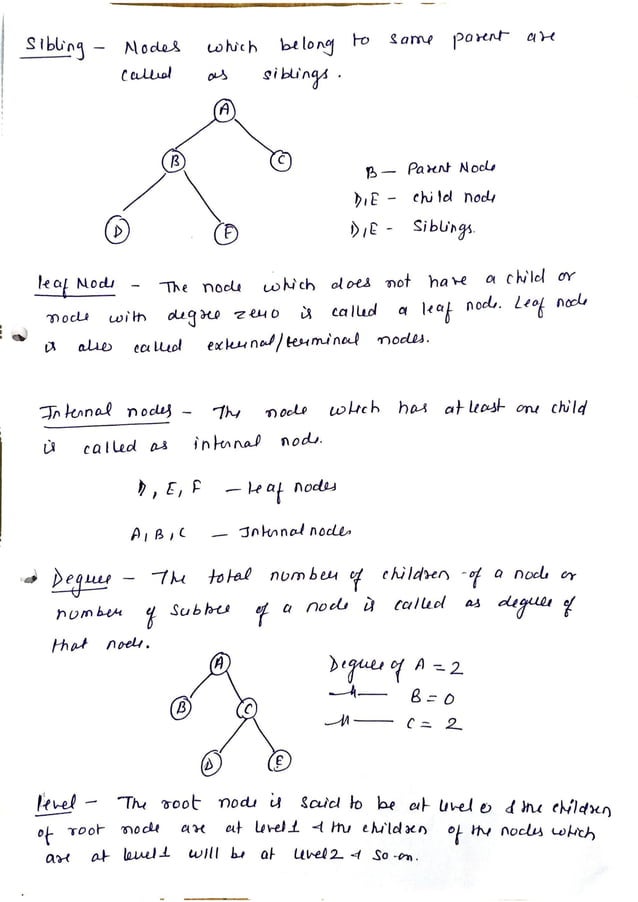 Sibling - Nodes which belong to same parent are
called as siblings.
A
B
C
B - Parent Node
D, E - child node
D
E
D, E - Siblings.
leaf Node - The node which does not have a child or
node with degree zero is called a leaf node. Leaf node
is also called external/terminal nodes.
Internal nodes - The node which has atleast one child
is called as internal node.
D, E, F - Leaf nodes
A, B, C - Internal nodes
Degree - The total number of children of a node or
number of subtree of a node is called as degree of
that node.
A
Degree of A = 2
B
C
-〃- B = 0
-〃- C = 2
D
E
level - The root node is said to be at level 0 & the children
of root node are at level 1 & the children of the nodes which
are at level 1 will be at level 2 & so-on.